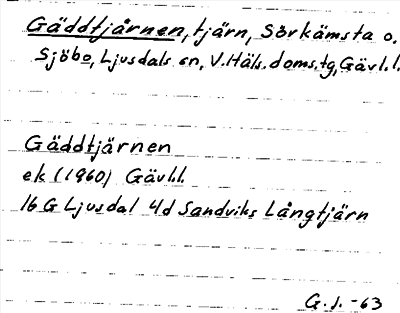 Gäddtjårnen, tjärn, Sörkämsta o.
Sjöbo, Ljusdals sn, V. Häls. doms. tg, Gävl. l.
Gäddtjärnen
ek (1960) Gävl.l.
16 G Ljusdal 4d Sandviks Långtjärn
G. J. -63